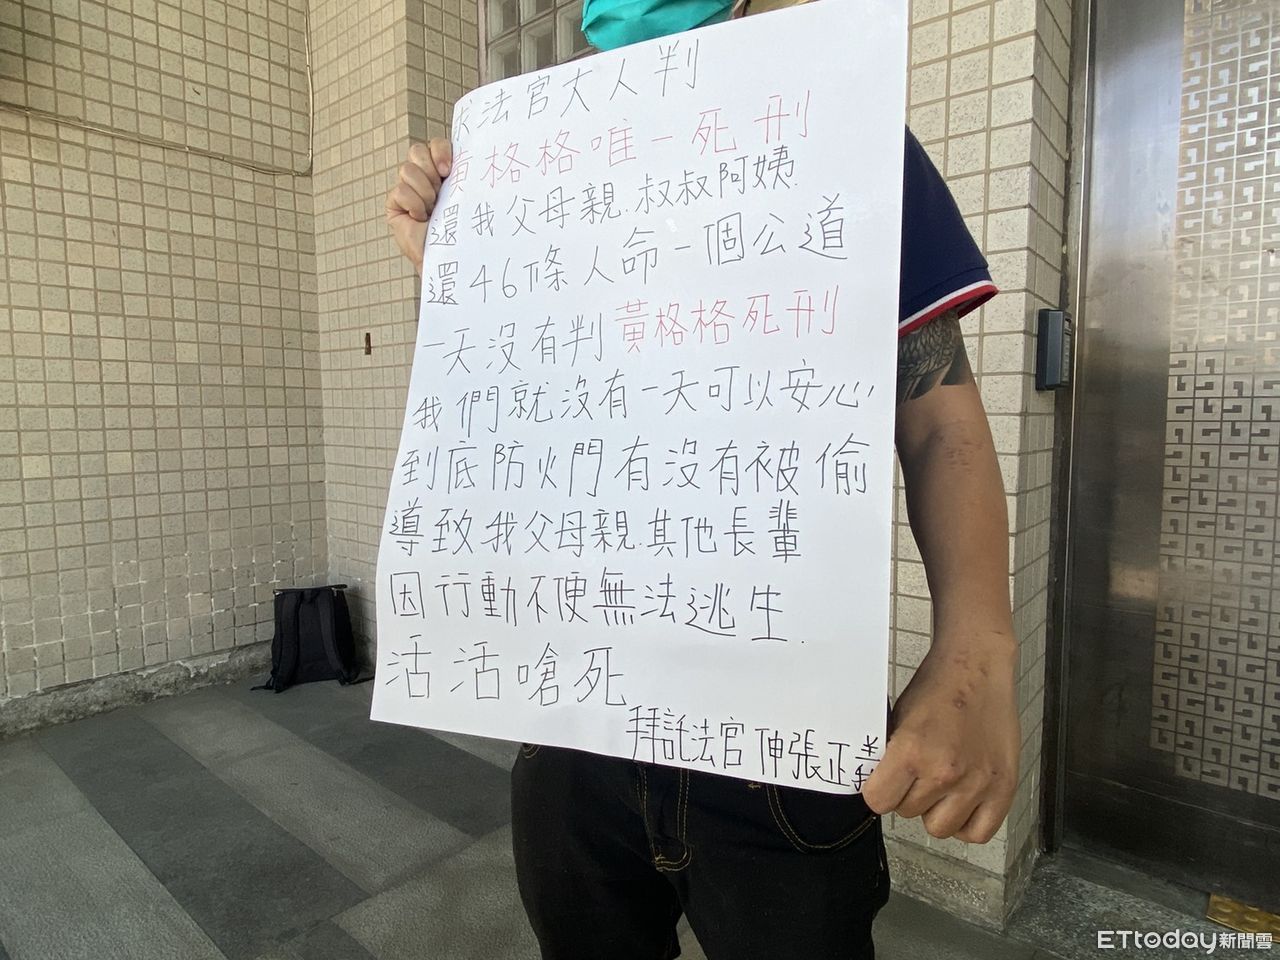 求法官大人判
黃格格唯一死刑
還我父母親.叔叔阿姨.
還46條人命一個公道
一天沒有判黃格格死刑
我們就沒有一天可以安心,
到底防火門有沒有被偷
導致我父母親.其他長輩
因行動不便無法逃生.
活活嗆死
拜託法官伸張正義
ETtoday新聞雲